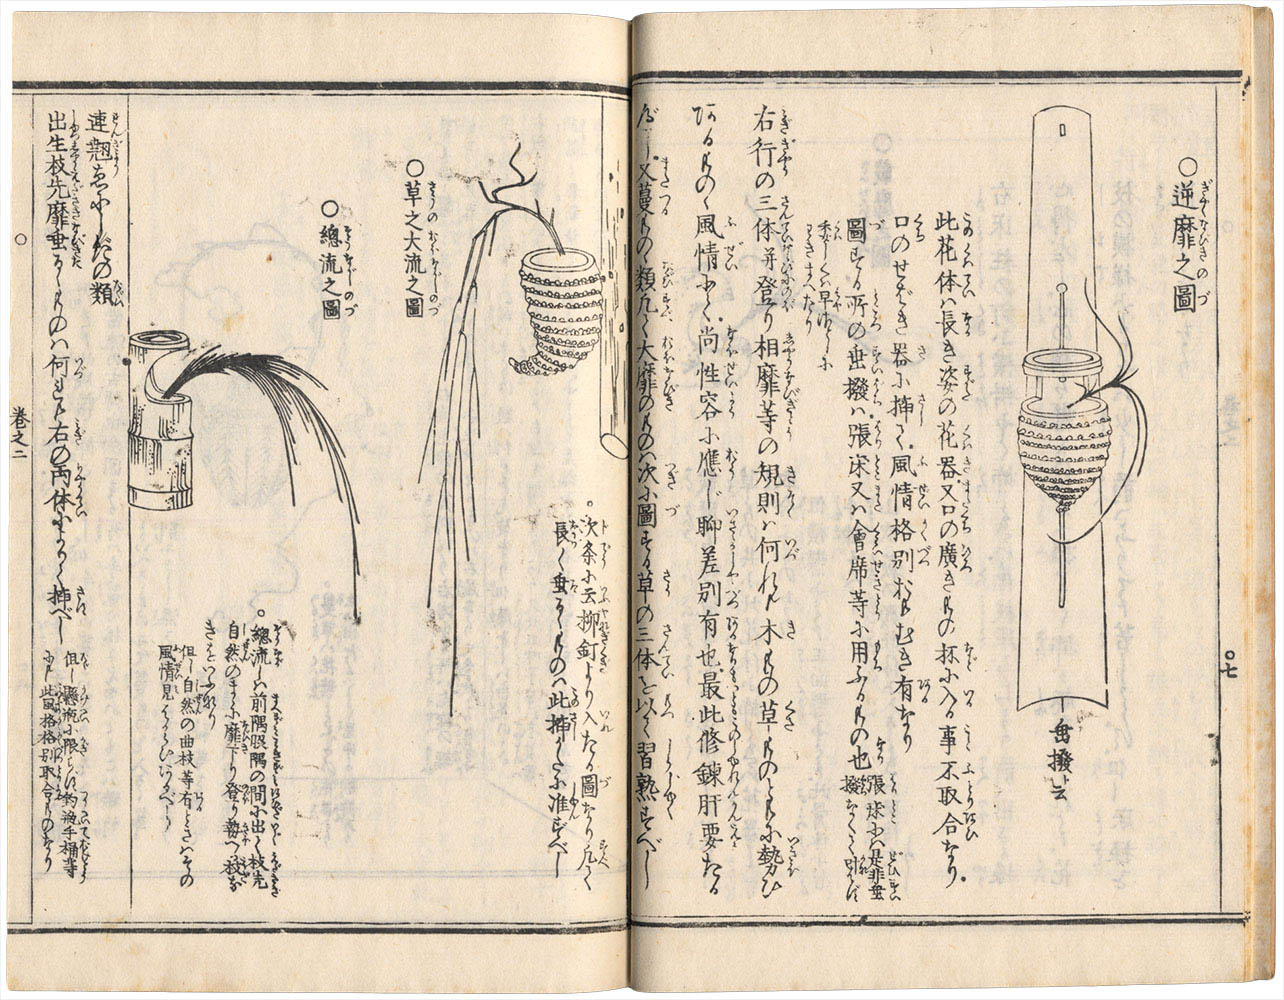 〇逆靡之圖
此花体ハ長き姿の花器又口の廣きもの抔に入る事不取合なり。
口のせばき器に挿て風情格別おもむき有なり
圖する所の垂撥ハ張床又ハ會席等に用ふるもの也
垂撥ト云
右行の三体并登り相靡等の規則ハ何れも木もの草ものともに勢ひ
あるもの〻風情にて尚性容に應じ聊差別有也最此修錬肝要たる
又蔓もの〻類凡て大靡のものハ次に圖する草の三体を以て習熟すべし
〇七
〇草之大流之圖
次条に云柳釘より入たる圖なり凡て
長く垂るものハ此挿かたに准ずべし
〇總流之圖
總流ハ前隅眼隅の間に出て枝先
自然のまゝに靡下り登り勢へ
但し自然の曲枝等有ときハその
風情見はからひあるべし
連翹糸やしだの類
出生枝先靡垂るゝものハ何れも右の両体によりて挿べし
但し懸瓶に限らば釣瓶手桶等
にも此風格格別取合ものなり
巻之二